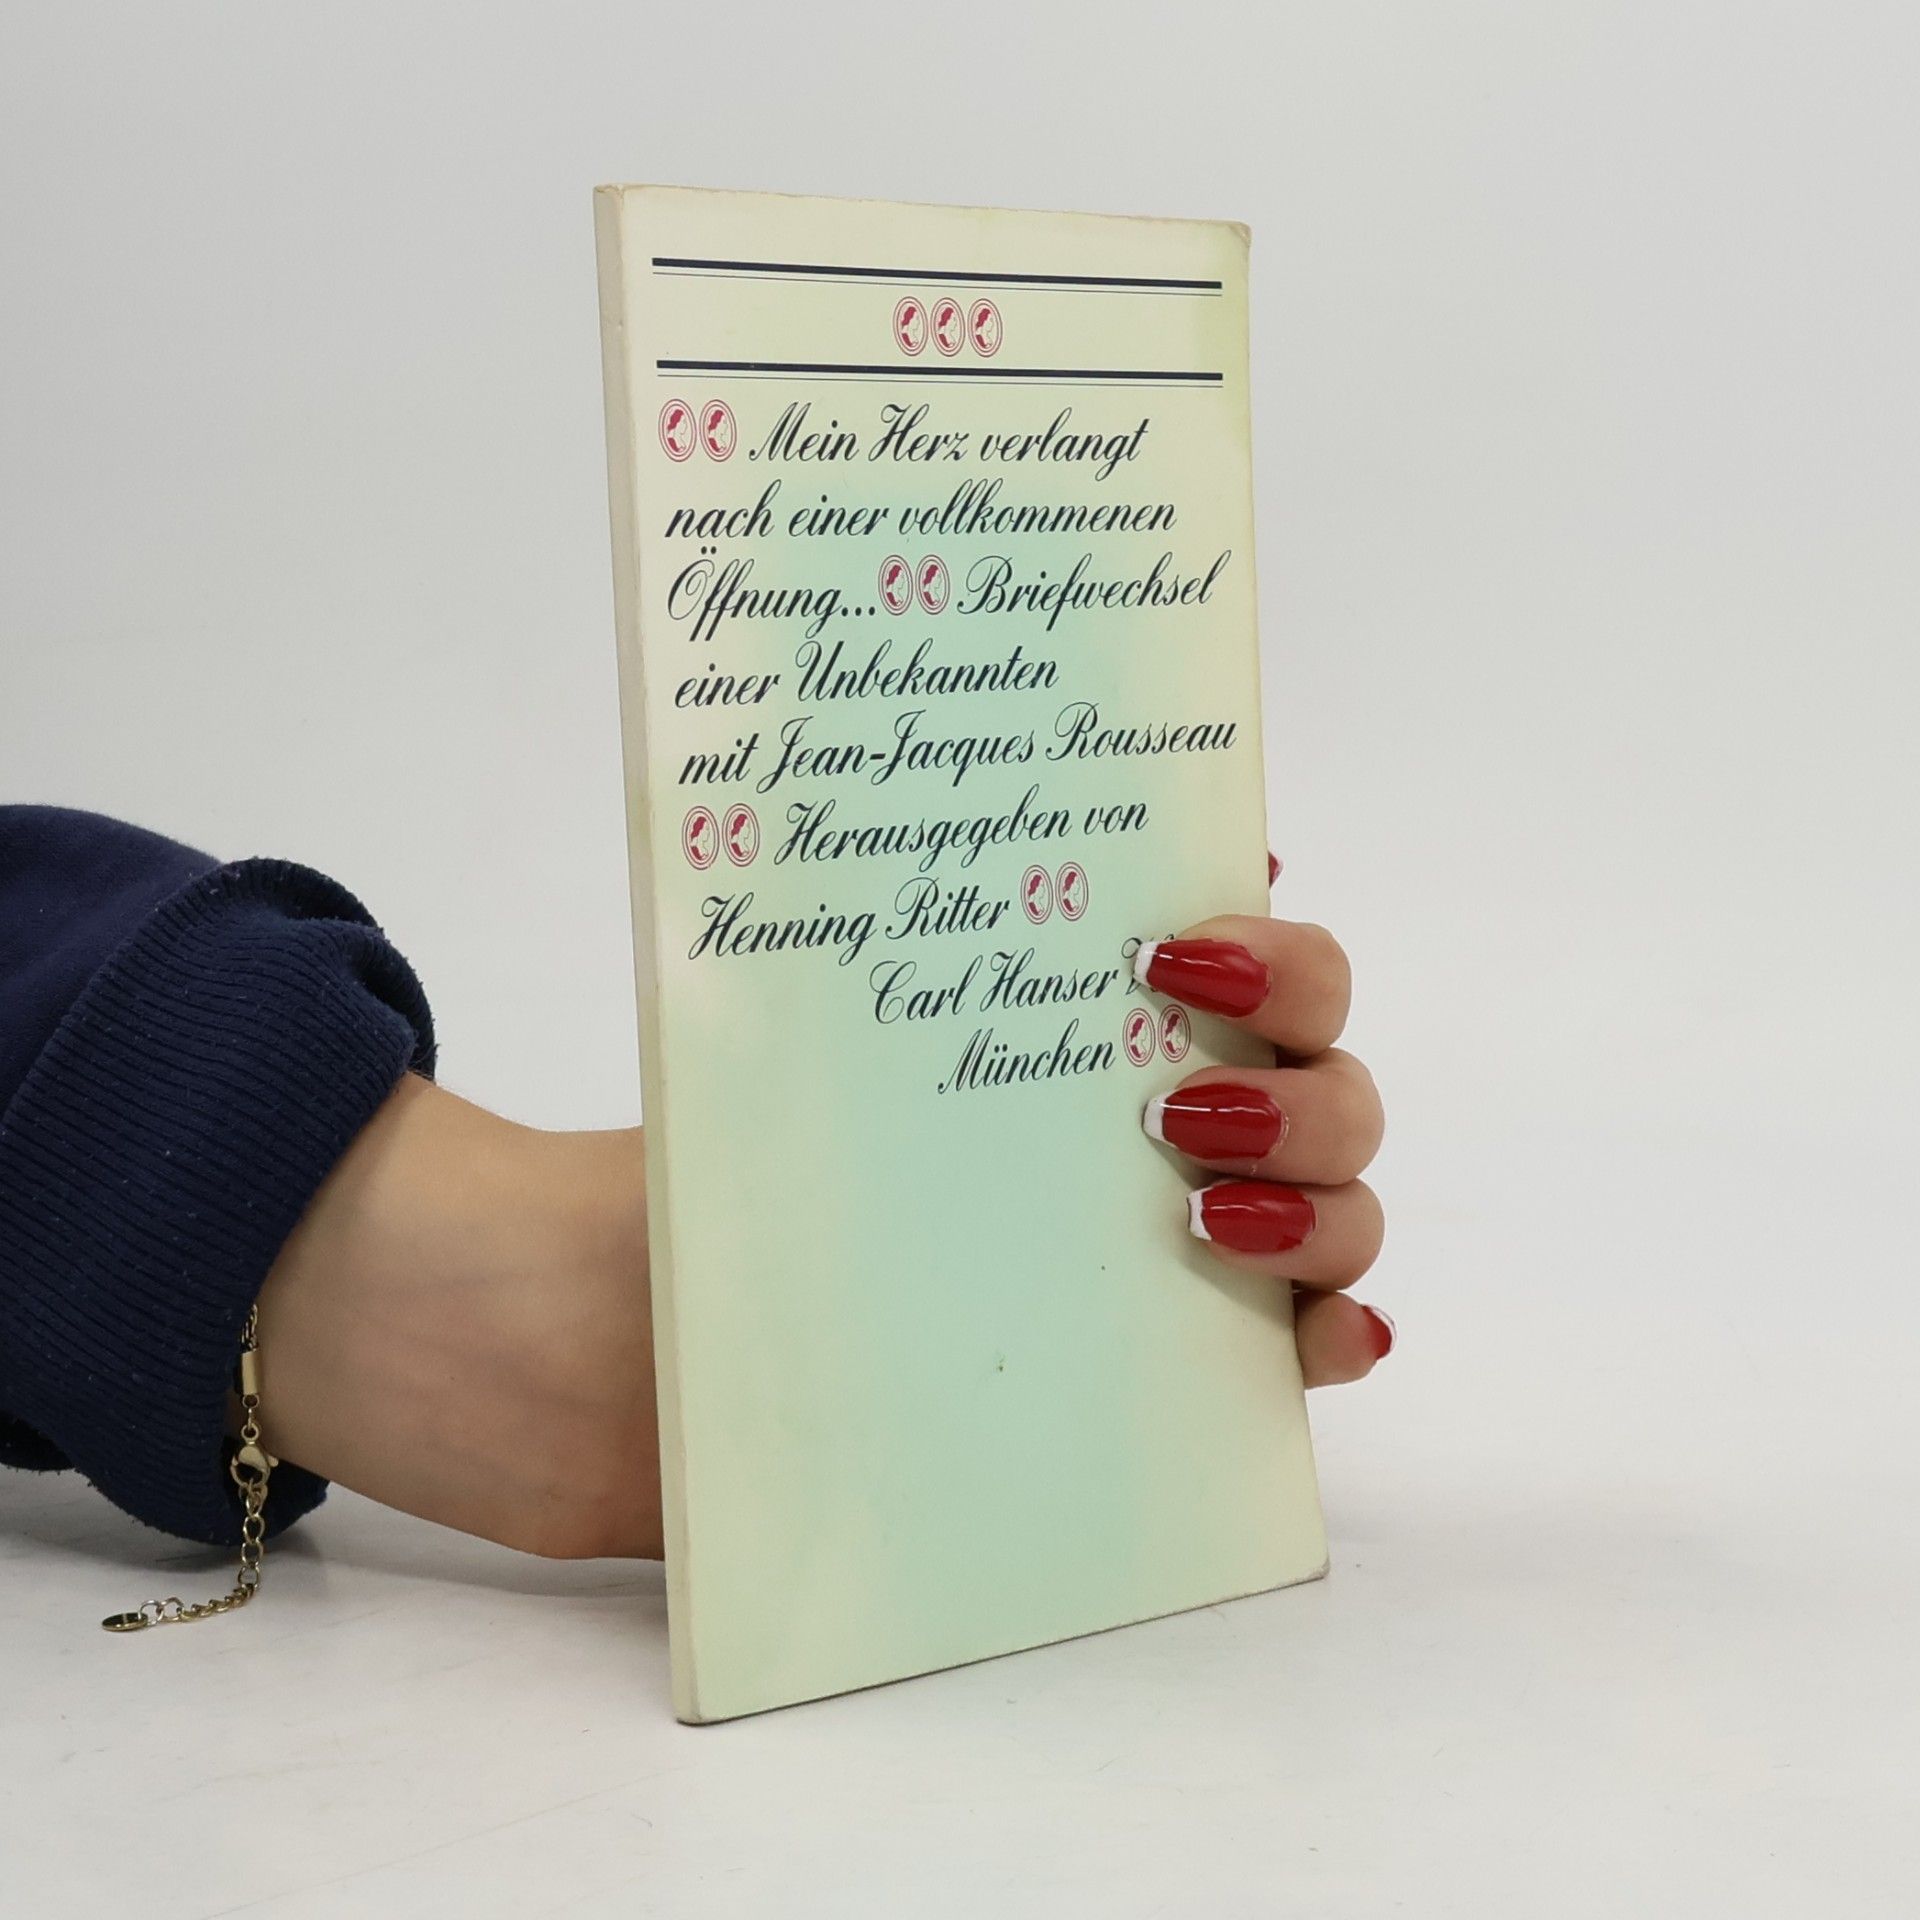 Mein Herz verlangt
nach einer vollkommenen
Öffnung... Briefwechsel
einer Unbekannten
mit Jean-Jacques Rousseau
Herausgegeben von
Henning Ritter
Carl Hanser
München